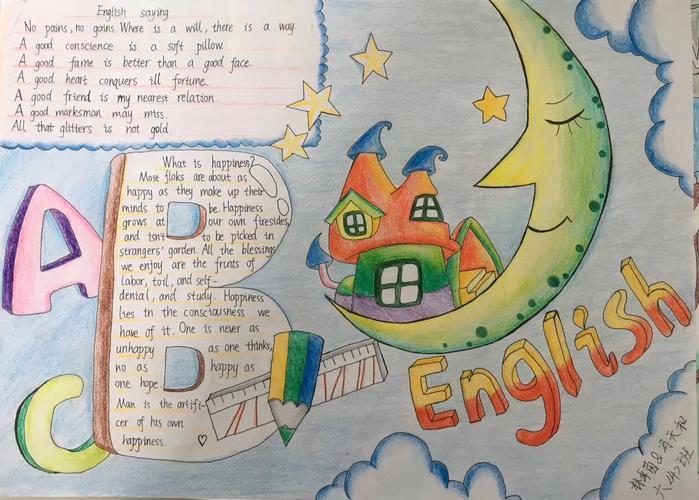 English saying
No pains, no gains. Where is a will, there is a way.
A good conscience is a soft pillow.
A good fame is better than a good face.
A good heart conquers ill fortune.
A good friend is my nearest relation.
A good marksman may miss.
All that glitters is not gold.
A
B
C
What is happiness?
Most floks are about as
happy as they make up their
minds to be. Happiness
grows at our own firesides,
and isn't to be picked in
strangers' garden. All the blessings
we enjoy are the fruits of
labor, toil, and self-
denial, and study. Happiness
lies in the consciousness we
have of it. One is never as
unhappy as one thinks,
no as happy as
one hope.
Man is the artifi-
cer of his own
happiness.
English
六(4)班